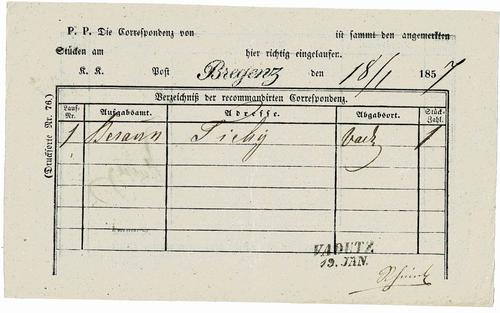 P. P. Die Correspondenz von ist sammt den angemerkten
Stücken am hier richtig eingelaufen.
K. K. Post Bregenz den 18/1 1857
Verzeichniß der recommandirten Correspondenz.
Lauf-Nr. Aufgabsamt. Adresse. Abgabsort. Stück-Zahl.
1 Beraun Tichý 1
(Drucksorte Nr. 76.)
VADUTZ
19. JAN.